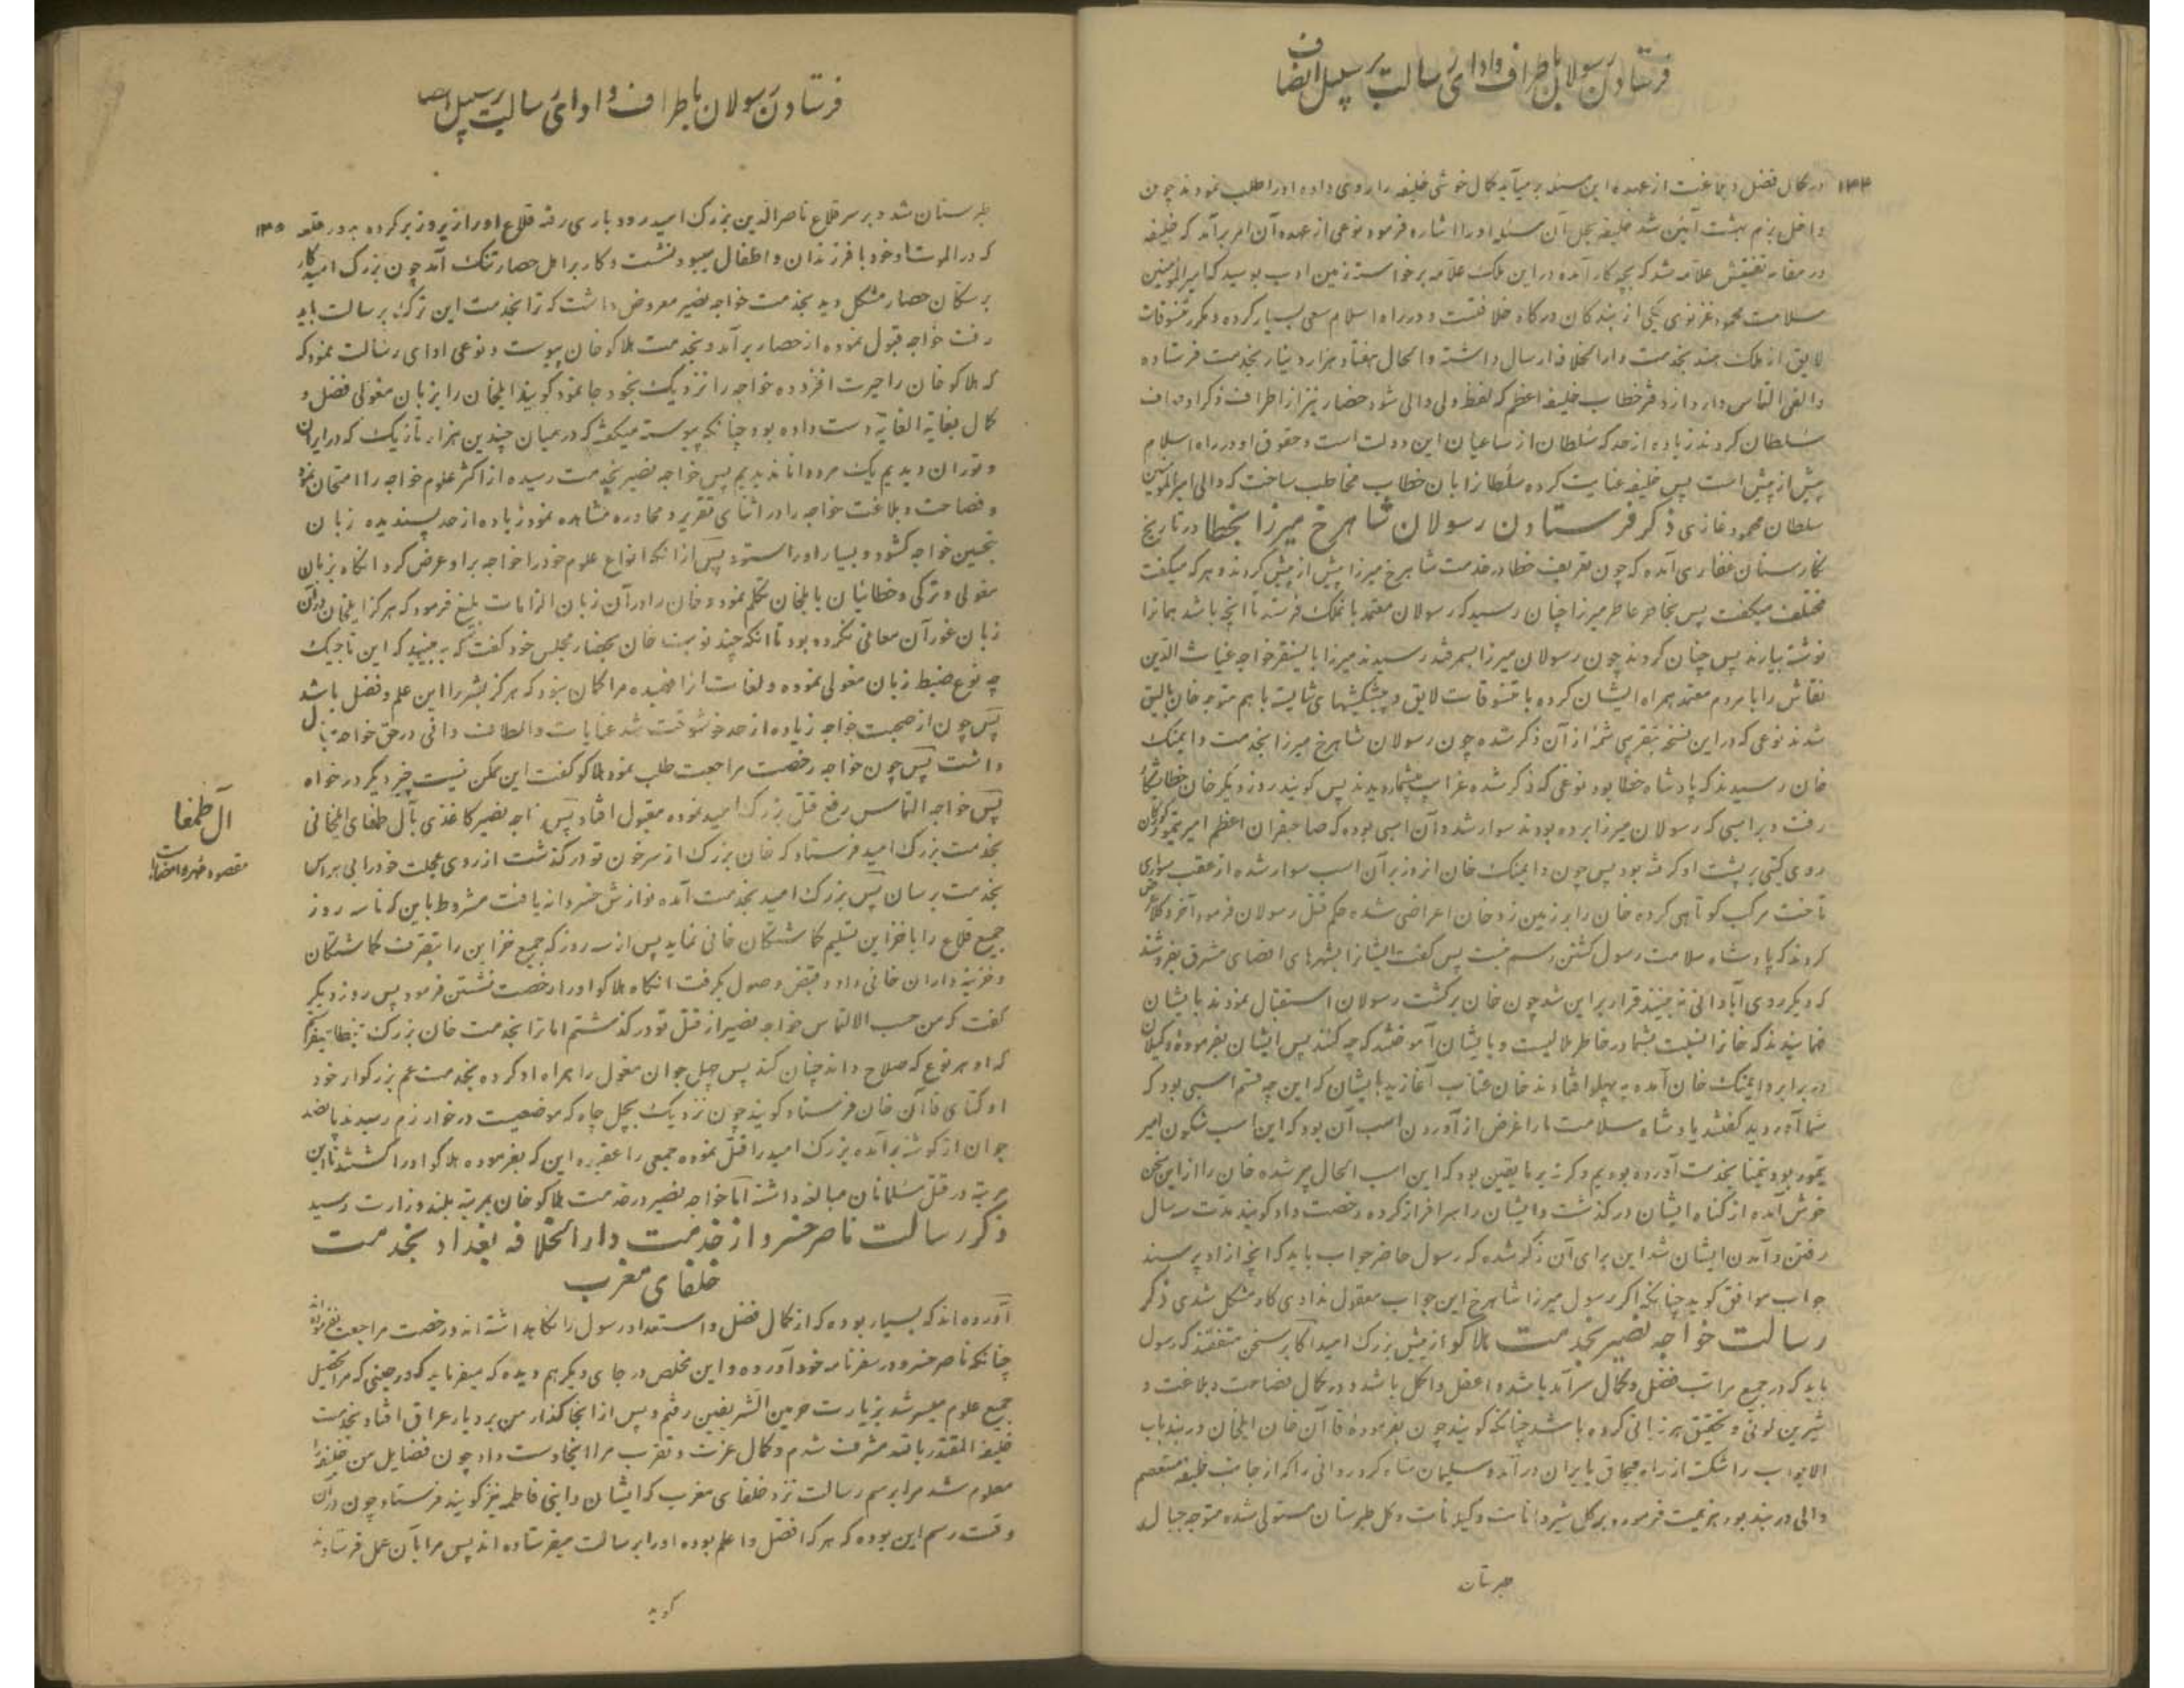 فرستادن رسولان باطراف وادای رسالت بر سبیل انصاف
۱۳۴
در کمال فضل و بلاغت از عهده این مسند بر میآید کمال خوشی خلیفه را روی داده او را طلب نمودند چون
داخل بزم بهشت آئین شد خلیفه بحل آن مسئله او را اشاره فرمود نوعی از عهده آن امر برآمد که خلیفه
در مقام تفتیش علامه شد که بچه کار آمده در این ملک علامه برخواسته زمین ادب بوسید که امیرالمؤمنین
سلامت محمود غزنوی یکی از بندکان درکاه خلافتست و در راه اسلام سعی بسیار کرده و مکرر تنسوقات
لایق از ملک هند بخدمت دارالخلافه ارسال داشته والحال هفتاد هزار دینار بخدمت فرستاده
والقی التماس دارد از دفتر خطاب خلیفه اعظم که لفظ ولی والی شود حضار نیز از اطراف ذکر اوصاف
سلطان کردند زیاده از حد که سلطان از ساعیان این دولت است و حقوق او در راه اسلام
پیش از پیش است پس خلیفه عنایت کرده سلطانرا بان خطاب مخاطب ساخت که والی امیرالمؤمنین
سلطان محمود غازی ذکر فرستادن رسولان شاهرخ میرزا بخطا در تاریخ
نکارستان غفاری آمده که چون تعریف خطا در خدمت شاهرخ میرزا پیش از پیش کردند و هر که میکفت
مختلف میکفت پس بخاطر عاطر میرزا چنان رسید که رسولان معتمد بانملک فرستد تا آنچه باشد همانرا
نوشته بیارند پس چنان کردند چون رسولان میرزا بسمرقند رسیدند میرزا بایسنقر خواجه غیاث الدین
نقاش را با مردم معتمد همراه ایشان کرده با تنسوقات لایق و پیشکیشهای شایسته با هم متوجه خان بالیق
شدند نوعی که در این نسخه بتقریبی شمه از آن ذکر شده چون رسولان شاهرخ میرزا بخدمت دایمنک
خان رسیدند که پادشاه خطا بود نوعی که ذکر شده غرایب بیشمار دیدند پس کویند روز دیکر خان خطا بشکار
رفت و بر اسبی که رسولان میرزا برده بودند سوار شد و آن اسبی بوده که صاحبقران اعظم امیر تیمور کورکان
روی کیتی بر پشت او کرفته بود پس چون دایمنک خان انروز بر آن اسب سوار شده از عقب سواری
تاخت مرکب کوتاهی کرده خان را بر زمین زد خان اعراضی شده حکم قتل رسولان فرمود آخر وکلا عرض
کردند که پادشاه سلامت رسول کشتن رسم نیست پس کفت ایشانرا بشهرهای اقصای مشرق بفروشند
که دیکر روی آبادانی نه بینند قرار بر این شد چون خان برکشت رسولان استقبال نمودند بایشان
فهمانیدند که خانرا نسبت بشما در خاطر ملالیست و بایشان آموختند که چه کنند پس ایشان بفرموده وکیلان
در برابر دایمنک خان آمده به پهلو افتادند خان عتاب آغازید بایشان که این چه قسم اسبی بود که
شما آوردید کفتند پادشاه سلامت ما را غرض از آوردن اسب آن بود که این اسب شکون امیر
تیمور بود تیمنا بخدمت آورده بودیم و کر نه بر ما یقین بود که این اسب الحال پیر شده خان را از این سخن
خوش آمده از کناه ایشان در کذشت و ایشان را سرافراز کرده رخصت داد کویند مدت سه سال
رفتن و آمدن ایشان شد این برای آن ذکر شده که رسول حاضر جواب باید که آنچه از او پرسند
جواب موافق کوید چنانکه اکر رسول میرزا شاهرخ این جواب معقول ندادی کار مشکل شدی ذکر
رسالت خواجه نصیر بخدمت هلاکو از پیش بزرک امید اکابر سخن متفقند که رسول
باید که در جمیع مراتب فضل و کمال سرآمد باشد و اعقل و اکمل باشد و در کمال فصاحت و بلاغت و
شیرین کوئی و تحقیق هر زبانی کرده باشد چنانکه کویند چون بفرموده قاآن خان ایلخان دربند باب
الابواب را شکست از راه قبچاق بایران در آمد و سلیمان شاه کرد روانی را که از جانب خلیفه مستعصم
والی دربند بود هزیمت فرموده بر کل شیروانات و کیلانات و کل طبرستان مستولی شده متوجه جبال
طبرستان
فرستادن رسولان باطراف وادای رسالت بر سبیل انصاف
۱۳۵
طبرستان شد و بر سر قلاع ناصرالدین بزرک امید رودباری رفته قلاع او را زیر و زبر کرده به در قلعه
که در الموت او خود با فرزندان و اطفال میبود نشست و کار بر اهل حصار تنک آمد چون بزرک امید کار
بر سکان حصار مشکل دید بخدمت خواجه نصیر معروض داشت که ترا بخدمت این ترک برسالت باید
رفت خواجه قبول نموده از حصار برآمد و بخدمت هلاکو خان پیوست و نوعی ادای رسالت نمود که
که هلاکو خان را حیرت افزوده خواجه را نزدیک بخود جا نمود کویند ایلخان را بزبان مغولی فضل و
کمال بغایة الغایة دست داده بود چنانکه پیوسته میکفت که در میان چندین هزار تازیک که در ایران
و توران دیدیم یک مرد دانا ندیدیم پس خواجه نصیر بخدمت رسیده از اکثر علوم خواجه را امتحان نمود
و فصاحت و بلاغت خواجه را در اثنای تقریر و محاوره مشاهده نمود زیاده از حد پسندیده زبان
بتحسین خواجه کشود و بسیار او را ستود پس از آنکه انواع علوم خود را خواجه بر او عرض کرد انکاه بزبان
مغولی و ترکی و خطائیان با ایلخان تکلم نمود و خان را در آن زبان الزامات بلیغ فرمود که هرکز ایلخان در آن
زبان غور آن معانی نکرده بود تا آنکه چند نوبت خان بحضار مجلس خود کفت که به بینید که این تاجیک
چه نوع ضبط زبان مغولی نموده و لغات انرا فهمیده مرا کمان نبود که هرکز بشر را این علم و فضل باشد
پس چون از صحبت خواجه زیاده از حد خوشوقت شد عنایات و الطاف وافی در حق خواجه مبذول
داشت پس چون خواجه رخصت مراجعت طلب نمود هلاکو کفت این ممکن نیست چیز دیکر در خواه
پس خواجه التماس رفع قتل بزرک امید نموده مقبول افتاد پس خواجه نصیر کاغذی بآل طمغای ایلخانی
بخدمت بزرک امید فرستاد که خان بزرک از سر خون تو در کذشت از روی عجلت خود را بی هراس
بخدمت برسان پس بزرک امید بخدمت آمده نوازش خسروانه یافت مشروط باین که تا سه روز
جمیع قلاع را با خزاین تسلیم کماشتکان خانی نماید پس از سه روز که جمیع خزاین را بتصرف کماشتکان
و خزینه داران خانی داد و قبض وصول بکرفت انکاه هلاکو او را رخصت نشستن فرمود پس روز دیکر
کفت که من حسب الالتماس خواجه نصیر از قتل تو در کذشتم اما ترا بخدمت خان بزرک بخطا میفرستم
که او هر نوع که صلاح داند چنان کند پس چهل جوان مغول را همراه او کرده بخدمت عم بزرکوار خود
اوکتای قاآن خان فرستاد کویند چون نزدیک بچهل چاه که موضعیست در خوارزم رسیدند پانصد
جوان از کوشه برآمده بزرک امید را قتل نموده جمعی را عقیده این که بفرموده هلاکو او را کشتند تا این
مرتبه در قتل مسلمانان مبالغه داشته اما خواجه نصیر در خدمت هلاکو خان بمرتبه بلند وزارت رسید
ذکر رسالت ناصر خسرو از خدمت دارالخلافه بغداد بخدمت
خلفای مغرب
آورده اند که بسیار بوده که از کمال فضل و استعداد رسول را نکاهداشته اند و رخصت مراجعت نفرموده اند
چنانکه ناصر خسرو در سفرنامه خود آورده و این مخلص در جای دیکر هم دیده که میفرماید که در حینی که مرا تحصیل
جمیع علوم میسر شد بزیارت حرمین الشریفین رفتم و پس از انجا کذار من بر دیار عراق افتاد بخدمت
خلیفه المقتدر بالله مشرف شدم و کمال عزت و تقرب مرا انجا دست داد چون فضایل من خلیفه را
معلوم شد مرا برسم رسالت نزد خلفای مغرب که ایشان را بنی فاطمه نیز کویند فرستاد چون در آن
وقت رسم این بوده که هر که افضل و اعلم بوده او را برسالت میفرستاده اند پس مرا بآن عمل فرستادند
آل طمغا
مقصود مهر و امضا است
کوید